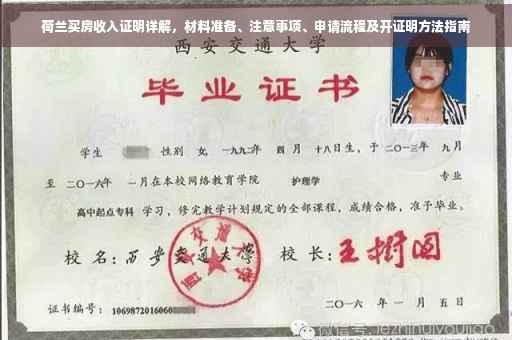 荷兰买房收入证明详解，材料准备、注意事项、申请流程及开证明方法指南
西安交通大学
毕业证书
学生 性别 女, 一九九二年 四月 十八日生, 于二〇一三年 九月
至 二〇一六年 一月在本校网络教育学院 护理学 专业
高中起点专科 学习, 修完教学计划规定的全部课程, 成绩合格, 准予毕业。
校名: 西安交通大学 校长: 王树国
西安交通大学
证书编号: 1069872016060 二〇一六年 一月 五日
微信号: jiezhihuiyoujiao